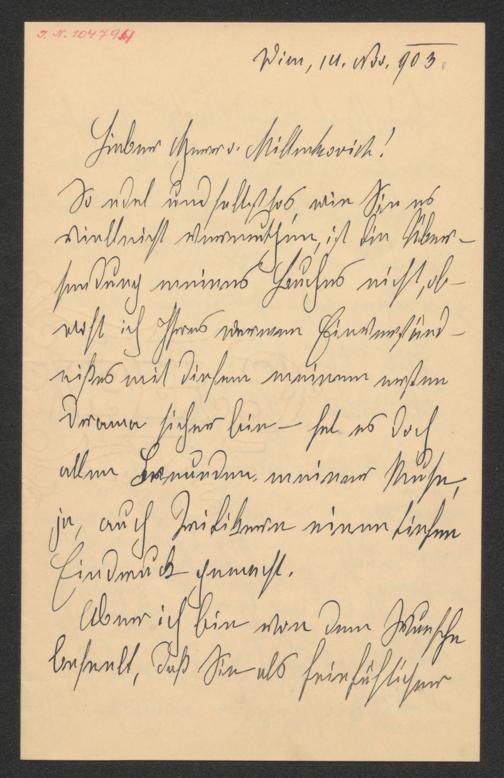 I. N. 104794
Wien, 14. Nov. 903.
Lieber Herr v. Millenkovich!
So edel und selbstlos, wie Sie es
vielleicht vermuthen, ist die Über-
sendung meines Buches nicht, ob-
wohl ich Ihres warmen Einverständ-
nißes mit diesem meinem ersten
Drama sicher bin – hat es doch
allen Freunden meiner Muse,
ja, auch Kritikern einen tiefen
Eindruck gemacht.
Aber ich bin von dem Wunsche
beseelt, daß Sie als feinfühliger